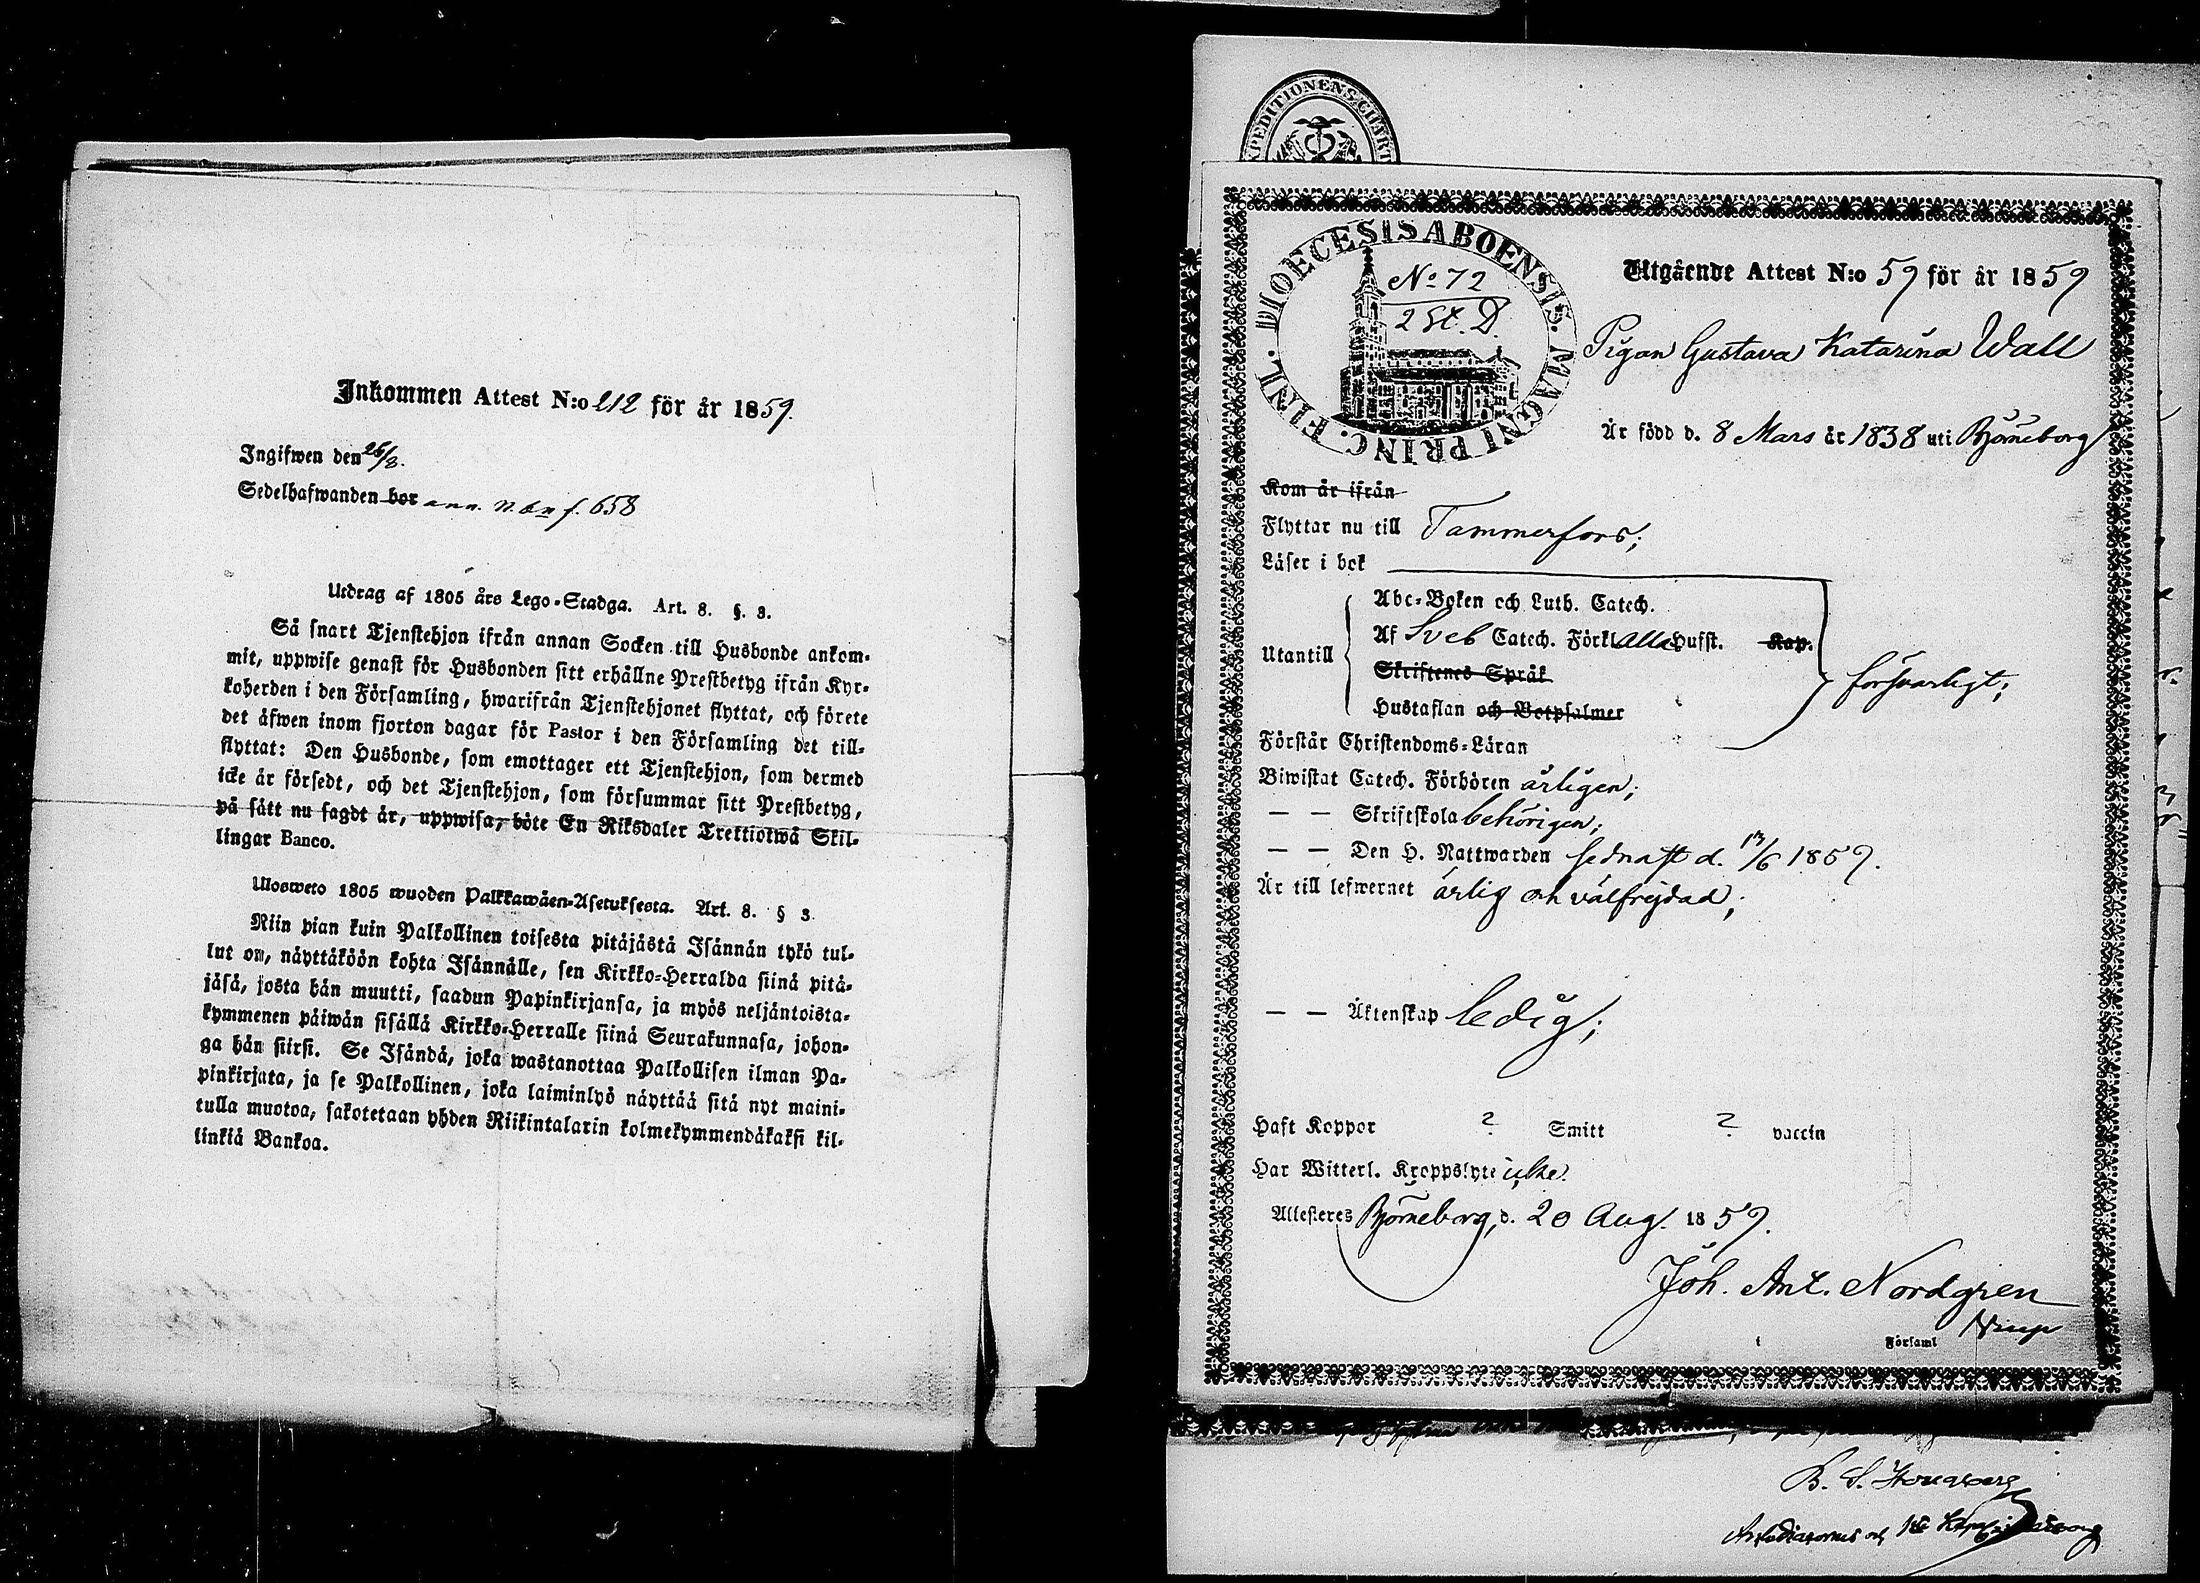 Inkommen Attest N:o 212 för år 1859.
Ingifwen den 26/8.
Sedelhafwanden bor ann. N. bn f. 658
Utdrag af 1805 års Lego-Stadga. Art. 8. §. 3.
Så snart Tjenstehjon ifrån annan Socken till Husbonde ankom-
mit, uppwise genast för Husbonden sitt erhållne Prestbetyg ifrån Kyr-
koherden i den Församling, hwarifrån Tjenstehjonet flyttat, och förete
det äfwen inom fjorton dagar för Pastor i den Församling det till-
flyttat: Den Husbonde, som emottager ett Tjenstehjon, som dermed
icke är försedt, och det Tjenstehjon, som försummar sitt Prestbetyg,
på sätt nu sagdt är, uppwisa, böte En Riksdaler Trettiotwå Skil-
lingar Banco.
Ulosweto 1805 wuoden Palkkawäen-Asetuksesta. Art. 8. § 3.
Niin pian kuin Palkollinen toisesta pitäjästä Isännän tykö tul-
lut on, näyttäköön kohta Isännälle, sen Kirkko-Herralda siinä pitä-
jäsä, josta hän muutti, saadun Papinkirjansa, ja myös neljäntoista-
kymmenen päiwän sisällä Kirkko-Herralle siinä Seurakunnasa, johon-
ga hän siirsi. Se Isändä, joka wastanottaa Palkollisen ilman Pa-
pinkirjata, ja se Palkollinen, joka laiminlyö näyttää sitä nyt maini-
tulla muotoa, sakotetaan yhden Riikintalarin kolmekymmendäkaksi kil-
linkiä Bankoa.
EXPEDITIONENS CHART
DIOECESIS ABOENSIS. MAGNI PRINC. FINL.
No 72
2 St. D.
Utgående Attest N:o 59 för år 1859
Pigan Gustava Katarina Wall
Är född d. 8 Mars år 1838 uti Björneborg
Kom år ifrån
Flyttar nu till Tammerfors;
Läser i bok
Utantill
Abc-Boken och Luth. Catech.
Af Sveb Catech. Förkl alla Hufst. Kap.
Skriftenes Språk
Hustaflan och Botpsalmer
försvarligt;
Förstår Christendoms-Läran
Biwistat Catech. Förhören årligen;
— — Skriftskola behörigen;
— — Den H. Nattwarden sednast d. 17/6 1859.
Är till lefwernet ärlig och välfrejdad;
— — Äktenskap ledig;
Haft Koppor ? Smitt ? vaccin
Har Witterl. Kroppslyte icke.
Attesteres Björneborg, d. 20 Aug. 1859.
Joh. Ant. Nordgren
i Församl
B. S.
Arkidiakonus och 1ste